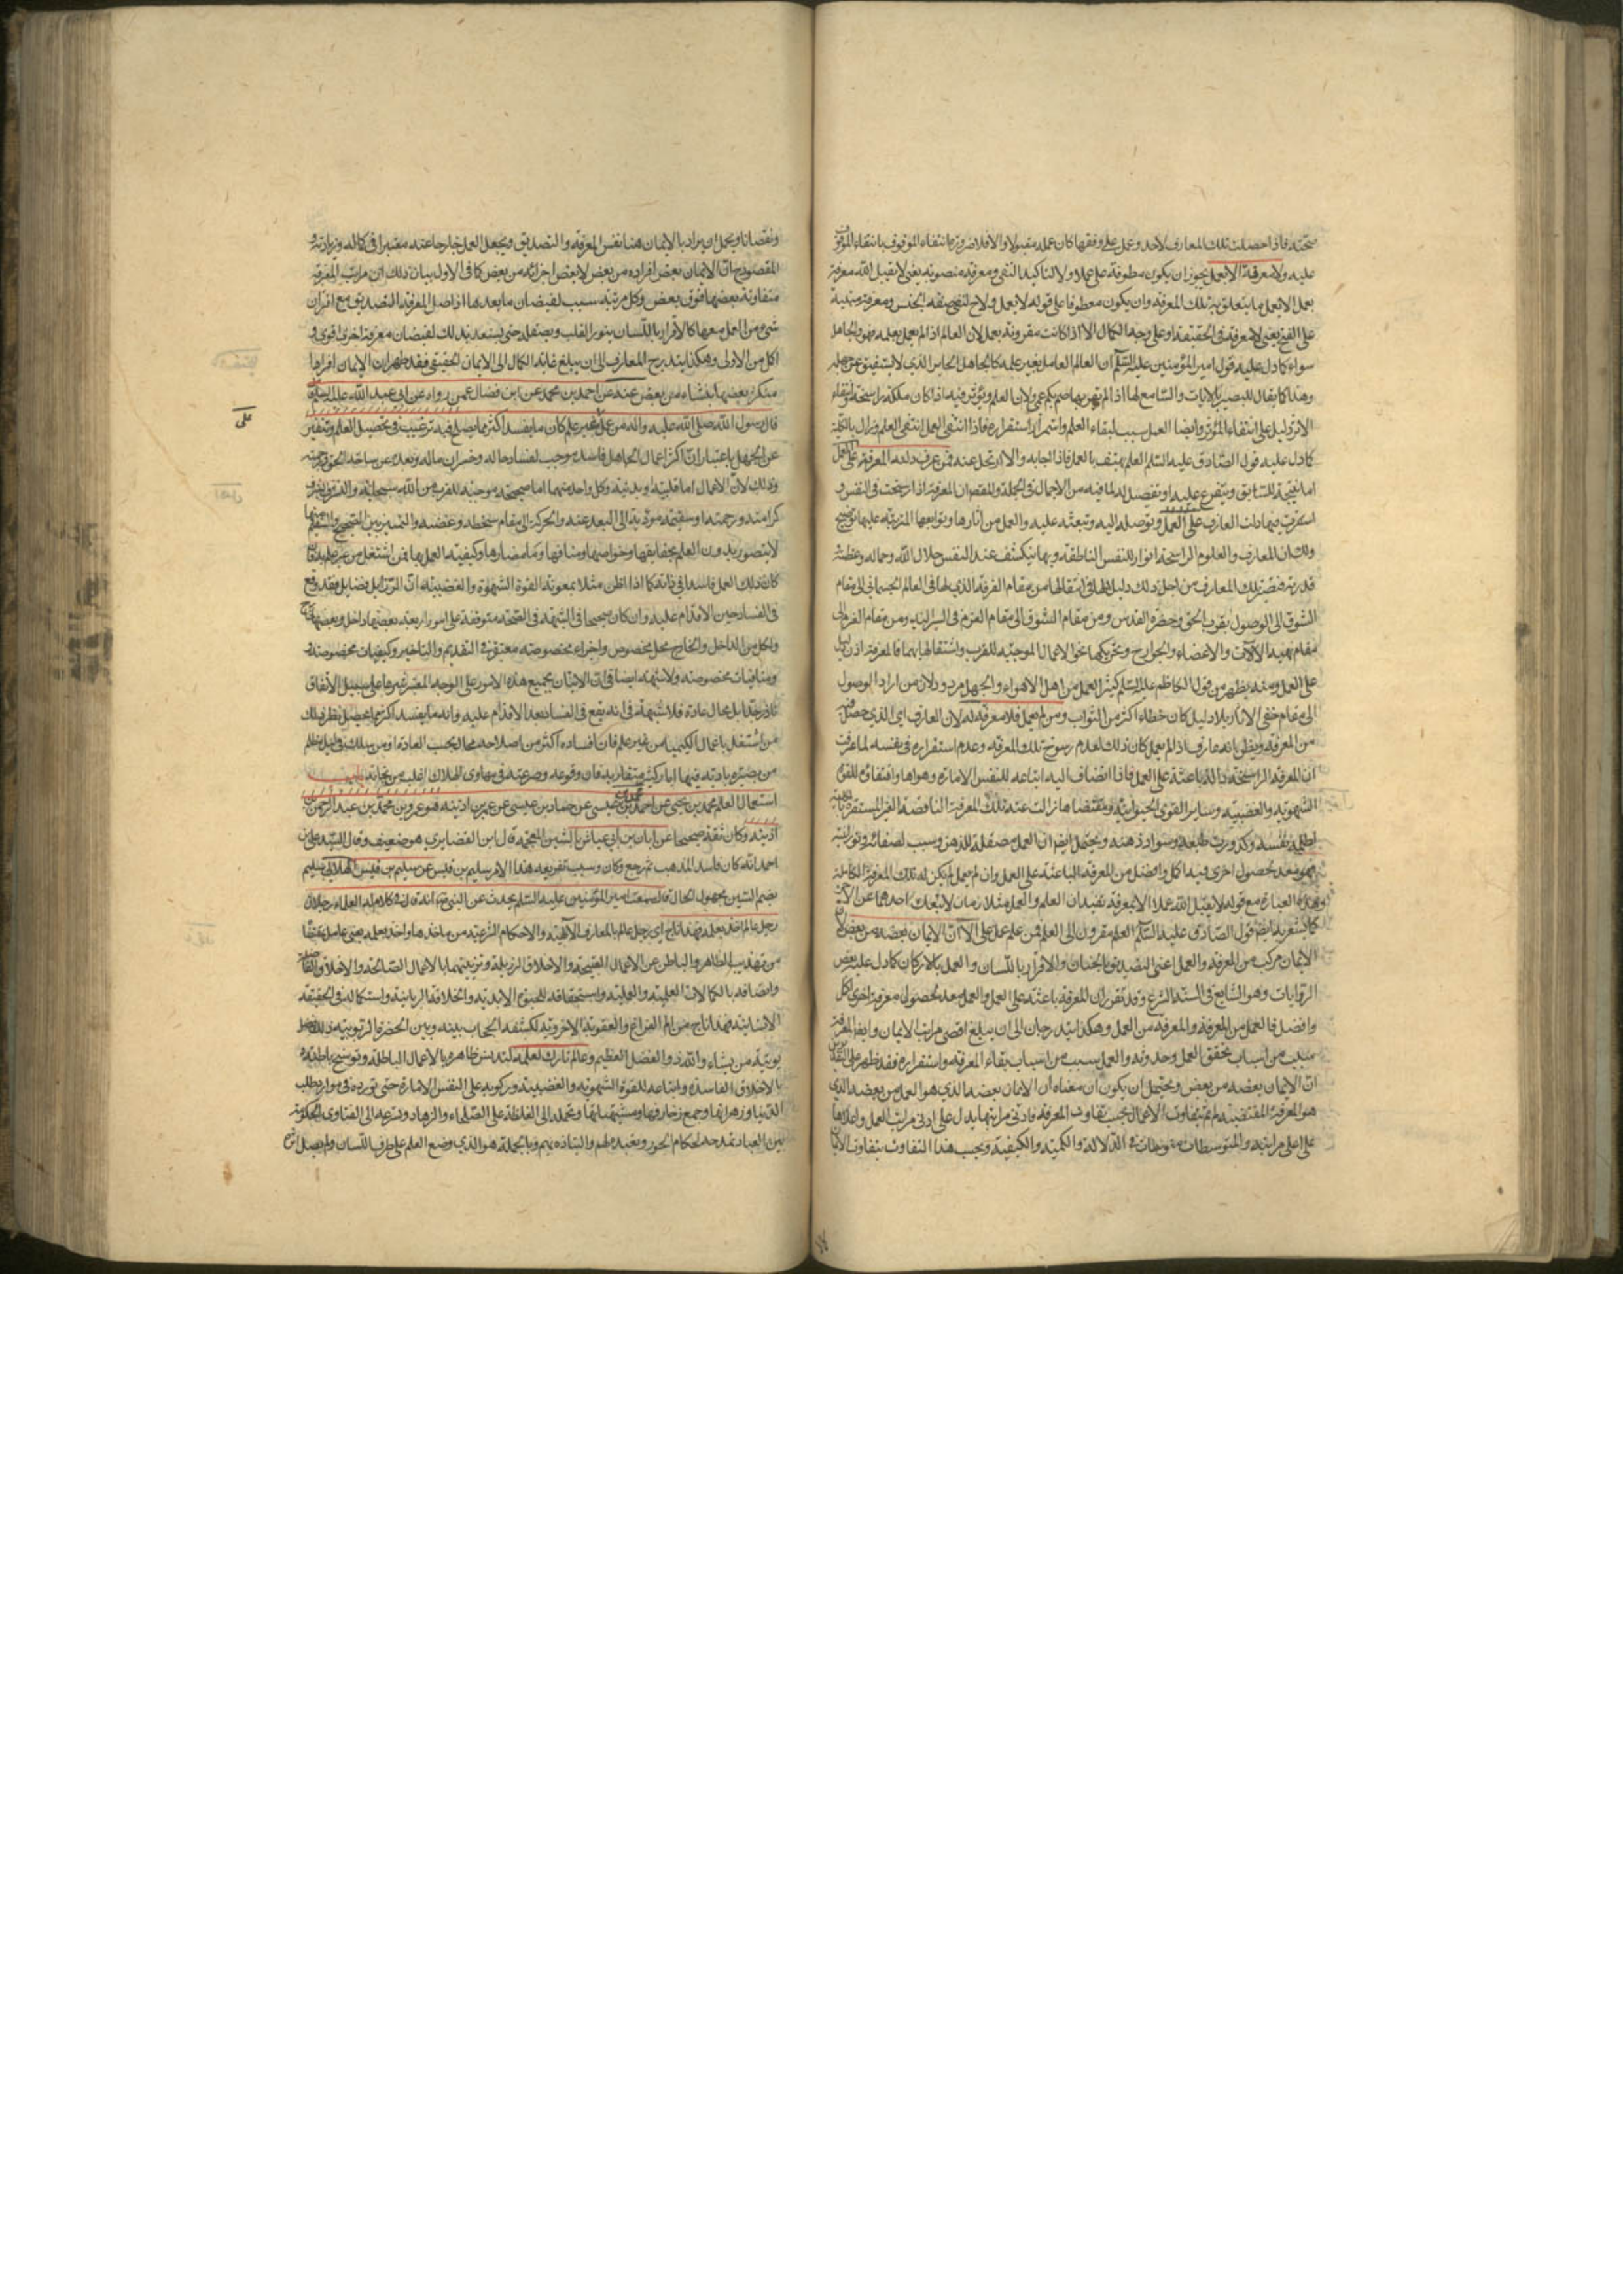 صحته فاذا حصلت تلك المعارف لاحد وعمل على وفقها كان عمله مقبولا والا فلا ضرورة انتفاء الموقوف بانتفاء الموقوف
عليه ولا معرفة الا بعمل يجوز ان يكون معطوفة على عملا ولا لتاكيد النفي ومعرفة منصوبة يعني لا يقبل الله معرفة
بعمل الا بعمل ما يتعلق بتلك المعرفة وان يكون معطوفا على قوله لا يعمل ولا ح لنفي صفة الجنس ومعرفة مبنية
على الفتح يعني لا معرفة في الحقيقة او على وجه الكمال الا اذا كانت مقرونة بعمل لان العالم اذا لم يعمل بعلمه فهو والجاهل
سواء كما دل عليه قول امير المؤمنين عليه السلم ان العالم العامل بغير علمه كالجاهل الحاير الذي لا يستفيق عن جهله
وهذا كما يقال للبصير بالايات والسامع لها اذا لم بها صم بكم عمي ولان العلم ويؤثر فيه اذا كان ملكة راسخة انتفاء
الاثر دليل على انتفاء المؤثر وايضا العمل سبب لبقاء العلم واستمراره استقراره فاذا انتفى العمل انتفى العلم وزال بالكلية
كما دل عليه قول الصادق عليه السلم العلم يهتف بالعمل فان اجابه والا ارتحل عنه فمن عرف دلته المعرفة على العمل
اما نتيجة للسابق ومتفرع عليه او تفصيل له لما فيه من الاجمال في الجملة والمقص ان المعرفة اذا رسخت في النفس و
استقرت فيها دلت العارف على العمل وتوصله اليه وتبعثه عليه والعمل من اثارها وتوابعها المترتبة عليها توضيح
ذلك ان المعارف والعلوم الراسخة انوار للنفس الناطقة وبها ينكشف عند النفس جلال الله وجماله وعظمة
قدرته فتصير تلك المعارف من اجل ذلك دليل لها في انتقالها من مقام الفرقة الذي لها في العالم الجسماني الى مقام
الشوق الى الوصول بقرب الحق وحضرة القدس ومن مقام الشوق الى مقام العزم في السير اليه ومن مقام العزم الى
مقام تهيئة الالات والاعضاء والجوارح وتحريكها نحو الاعمال الموجبة للقرب واشتغالها بها فالمعرفة اذن دليل
على العمل ومنه يظهر من قول الكاظم عليه السلم كثير العمل من اهل الاهواء والجهل مردود لان من اراد الوصول
الى مقام خفي الاثار بلا دليل كان خطاءه اكثر من الثواب ومن لم يعمل فلا معرفة له لان العارف اي الذي حصل
من المعرفة ويظن بانه عارف اذا لم يعمل كان ذلك لعدم رسوخ تلك المعرفة وعدم استقراره في نفسه لما عرفت
ان المعرفة الراسخة دالة باعثة على العمل فاذا انضاف اليه اتباعه للنفس الامارة وهواها واقتفاؤه للقوة
الشهوية والغضبية وساير القوى الحيوانية ومقتضاها زالت عنه تلك المعرفة الناقصة الغير المستقرة
نفسه وكدورت طبعه وسواد ذهنه ويحتمل ايضا ان العمل صقلة للذهن وسبب لصفائه ونورانيته
معد لحصول اخرى فيه اكمل وافضل من المعرفة الباعثة على العمل وان لم يعمل لم يكن له تلك المعرفة الكاملة
وهذه العبارة مع قوله لا يقبل الله عملا الا بمعرفة تفيد ان العلم والعمل متلازمان لا ينفك احدهما عن الاخر
كما يشعر به ايضا قول الصادق عليه السلم العلم مقرون الى العمل فمن علم عمل الا ان الايمان بعضه من بعض لان
الايمان مركب من المعرفة والعمل اعني التصديق بالجنان والاقرار باللسان والعمل بالاركان كما دل عليه بعض
الروايات وهو الشايع في السنة الشرع وقد تقرر ان المعرفة باعثة على العمل والعمل معد لحصول معرفة اخرى اكمل
وافضل فالعمل من المعرفة والمعرفة من العمل وهكذا يتدرجان الى ان يبلغ اقصى مراتب الايمان وايضا المعرفة
سبب من اسباب تحقق العمل وحدوثه والعمل سبب من اسباب بقاء المعرفة واستقراره فقد ظهر على التقديرين
ان الايمان بعضه من بعض ويحتمل ان يكون ان معناه ان الايمان بعضه الذي هو العمل من بعضه الذي
هو المعرفة المقتضية له ثم يتفاوت الاعمال بحسب تفاوت المعرفة فادنى مراتبها يدل على ادنى مراتب العمل واعلاها
على اعلى مراتبه والمتوسطات متوسطات في الدلالة والكمية والكيفية وبحسب هذا التفاوت يتفاوت الايمان
ونقصانا ويحتمل ان يراد بالايمان هنا نفس المعرفة والتصديق ويجعل العمل خارجا عنه معتبرا في كماله وزيادته و
المقصود ح ان الايمان بعض افراده من بعض لا بعض اجزائه من بعض كما في الاول بيان ذلك ان مراتب المعرفة
متفاوتة بعضها فوق بعض وكل مرتبة سبب لفيضان ما بعدها اذ اصل المعرفة التصديق مع اقتران
شيء من العمل معها كالاقرار باللسان ينور القلب ويصقله حتى يستعد بذلك لفيضان معرفة اخرى اقوى و
اكمل من الاولى وهكذا يتدرج المعارف الى ان يبلغ غاية الكمال الى الايمان الحقيقي فقد ظهر ان الايمان افراد
متكثرة بعضها ينشاء من بعض عنه عن احمد بن محمد عن ابن فضال عمن رواه عن ابي عبد الله عليه السلم قال
قال رسول الله صلى الله عليه واله من عمل على غير علم كان ما يفسد اكثر مما يصلح فيه ترغيب في تحصيل العلم وتنفير
عن الجهل باعتبار ان اكثر اعمال الجاهل فاسد موجب لفساد حاله وخسران ماله وبعده عن ساحة الحق ورحمته
وذلك لان الاعمال اما قلبية او بدنية وكل واحد منهما اما صحيحة موجبة للقرب من الله سبحانه والتشرف بشرف
كرامته ورحمته او سقيمة مؤدية الى البعد عنه والحركة الى مقام سخطه وغضبه والتميز بين الصحيح والسقيم منها
لا يتصور بدون العلم بحقايقها وخواصها ومنافعها ومضارها وكيفية العمل بها فمن اشتغل من غير علم
كان ذلك العمل فاسدا في ذاته كما اذا ظن مثلا بمعونة القوة الشهوة والغضبية ان الرذايل فضايل فقد وقع
في الفساد حين الاقدام عليه وان كان صحيحا في الشبهة في الصحة متوقفة على امور اربعة بعضها داخل وبعضها خارج
ولكل من الداخل والخارج محل مخصوص واجزاء مخصوصة معتبرة في التقديم والتاخير وكيفيات مخصوصة
ومنافيات مخصوصة ولا شبهة ايضا في ان الاتيان بجميع هذه الامور على الوجه المعتبر من غير علم على سبيل الاتفاق
نادر جدا بل محال عادة فلا شبهة في انه يقع في الفساد بعد الاقدام عليه وانه ما يفسد اكثر مما يصلح نظير ذلك
من اشتغل باعمال الكيميا من غير علم فان افساده اكثر من اصلاحه محال بحسب العادة او من سلك في ليل مظلم
من بصيرة بادية فيها ابار كثيرة متقاربة فان وقوعه وصرعته في مهاوى الهلاك اغلب من نجاته باب
استعمال العلم محمد بن يحيى عن احمد بن محمد بن عيسى عن حماد بن عيسى عن عمر بن اذينة هو عمر بن محمد بن عبد الرحمن بن
اذينة وكان ثقة صحيحا عن ابان بن ابي عياش بالشين المعجمة قال ابن الغضايري هو ضعيف وقال السيد علي بن
احمد انه كان فاسد المذهب ثم رجع وكان وسبب تعريفه هذا الامر سليم بن قيس عن سليم بن قيس الهلالي سليم
بضم السين مجهول الحال قال سمعت امير المؤمنين عليه السلم يحدث عن النبي ص انه قال في كلام له العلماء رجلان
رجل عالم اخذ بعلمه فهذا ناج اي رجل عالم بالمعارف الالهية والاحكام الشرعية من ماخذها واخذ بعلمه يعني عامل بمقتضاه
من تهذيب الظاهر والباطن عن الاعمال القبيحة والاخلاق الرذيلة وتزيينهما بالاعمال الصالحة والاخلاق الفاضلة
واتصافه بالكمالات العلمية والعملية واستحقاقه للحيوة الابدية والخلافة الربانية واستكماله في الحقيقة
الانسانية فهذا ناج من الم الفراغ والعقوبة الاخروية لكشفه الحجاب بينه وبين الحضرة الربوبية ذلك فضل
يؤتيه من يشاء والله ذو الفضل العظيم وعالم تارك لعلمه لتدنس ظاهره بالاعمال الباطلة وتوسخ باطنه
بالاخلاق الفاسدة واتباعه للقوة الشهوية والغضبية وركوبه على النفس الامارة حتى تورده في موارد طلب
الدنيا وزهراتها وجمع زخارفها ومشتهياتها وتحمله الى الغلظة على الصلحاء والزهاد وتسرعه الى الفتاوى والحكومة
بين العباد الجور وبالجملة هو الذي وضع العلم على طرف اللسان ولم يصل اثره
على